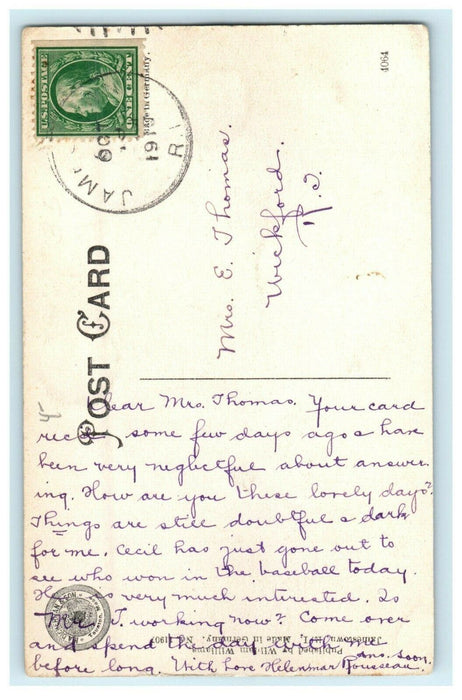 U.S. POSTAGE
ONE CENT
Made in Germany.
JAM
OCT
191
R.I.
4064
POST CARD
Mrs. E. Thomas.
Wickford.
R. I.
Dear Mrs. Thomas. Your card
rec'd some few days ago & have
been very neglectful about answer-
ing. How are you these lovely days?
Things are still doubtful & dark
for me. Cecil has just gone out to
see who won in the baseball today.
He is very much interested. Is
Mr. T. working now? Come over
and spend the day with me
before long. With love Helenmar Rousseau.
Ans. soon.
Published by William Williams
Jamestown, R. I. Made in Germany. No.